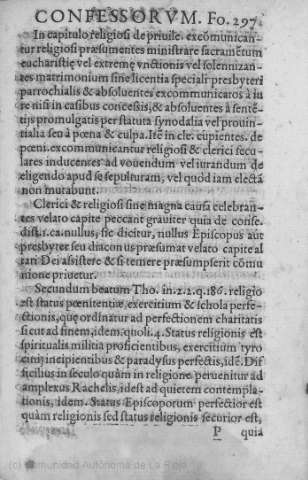 CONFESSORVM. Fo. 297.
In capitulo religiosi de priuile. excõmunican-
tur religiosi præsumentes ministrare sacramẽtum
eucharistiẹ vel extremẹ vnctionis vel solennizan-
tes matrimonium sine licentia speciali presbyteri
parrochialis & absoluentes excommunicatos à iu
re nisi in casibus concessis, & absoluentes à sentẽ-
tijs promulgatis per statuta synodalia vel prouin-
tialia seu à pœna & culpa. Itẽ in cle. cupientes. de
pœni. excommunicantur religiosi & clerici secu-
lares inducentes ad vouendum vel iurandum de
eligendo apud se sepulturam, vel quòd iam electã
non mutabunt.
Clerici & religiosi sine magna causa celebran-
tes velato capite peccant grauiter quia de conse.
dist. 1. ca. nullus, sic dicitur, nullus Episcopus aut
presbyter seu diaconus præsumat velato capite al
tari Dei assistere & si temere præsumpserit cõmu
nione priuetur.
Secundum beatum Tho. in. 2. 2. q. 186. religio
est status pœnitentiæ, exercitium & schola perfe-
ctionis, quẹ ordinatur ad perfectionem charitatis
sicut ad finem, idem. quoli. 4. Status religionis est
spiritualis militia proficientibus, exercitium tyro
cinij incipientibus & paradysus perfectis, idẽ. Dif
ficilius in seculo quàm in religione peruenitur ad
amplexus Rachelis, id est ad quietem contempla-
tionis, idem. Status Episcoporum perfectior est
quàm religionis sed status religionis securior est,
P quia
(c) Comunidad Autónoma de La Rioja